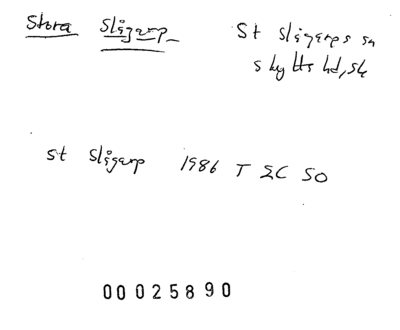 Stora Slågarp
St Slågarps sn
Skytts hd, Sk
St Slågarp 1986 T ΣC SO
00025890